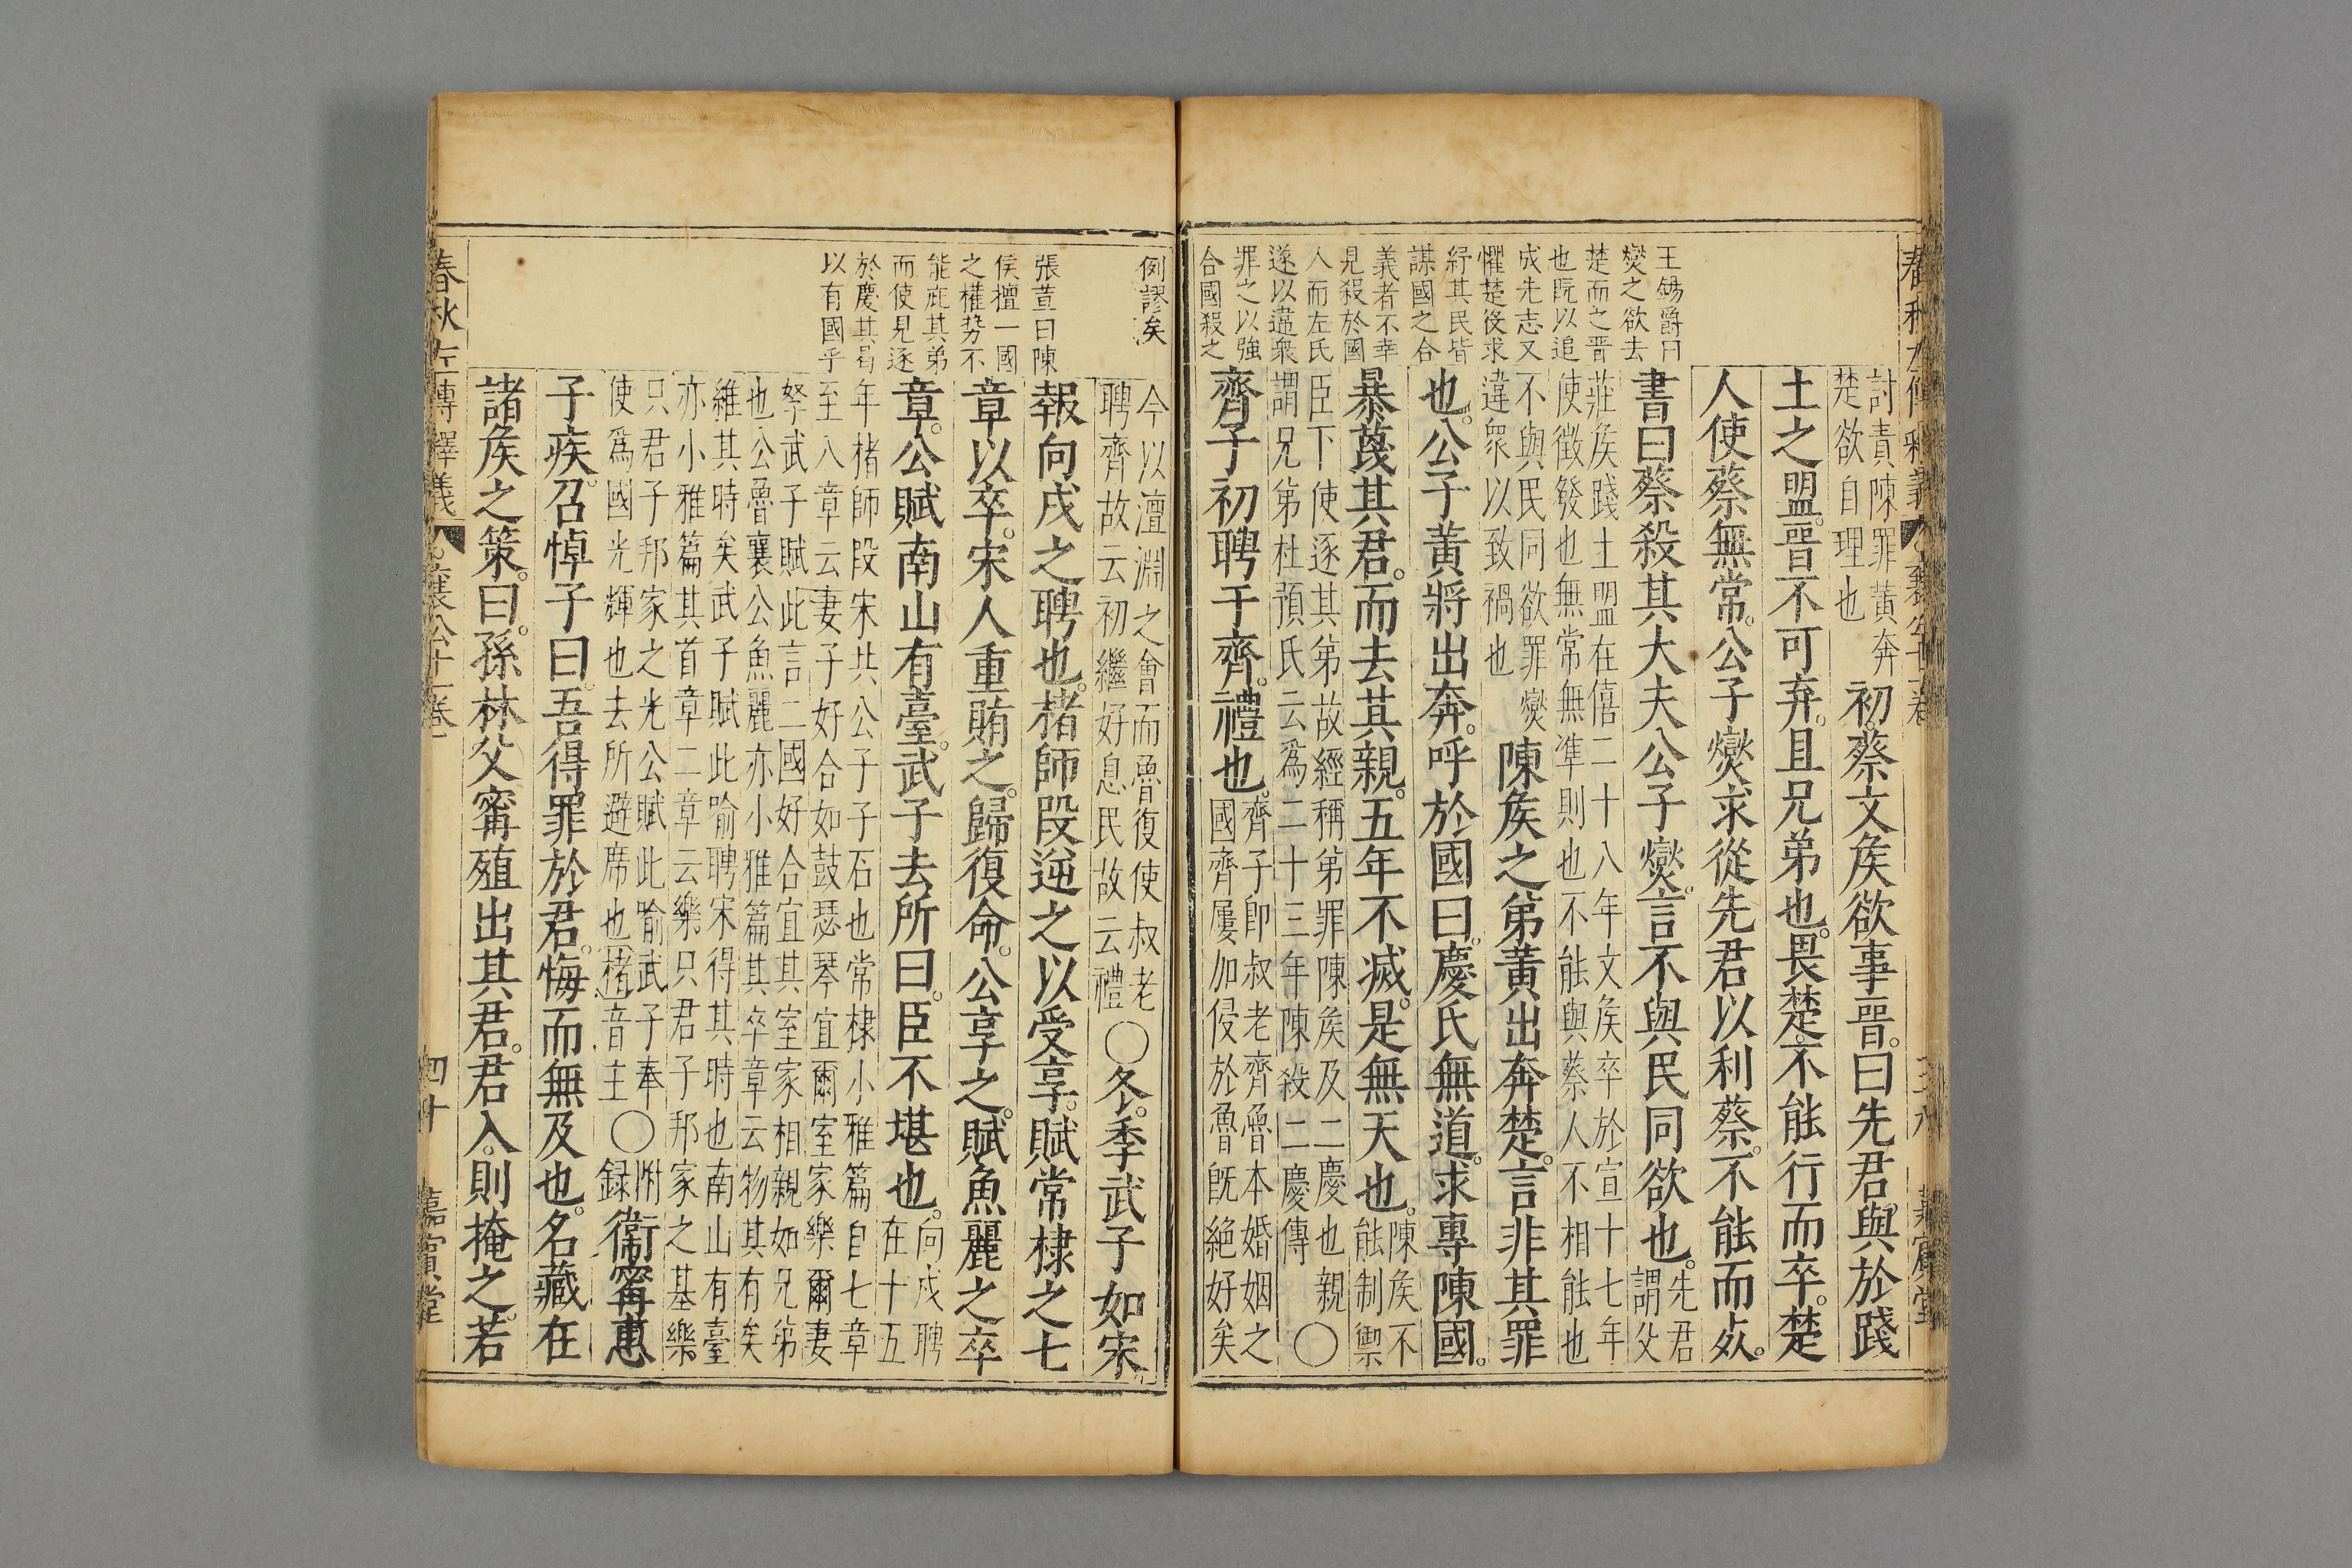 王錫爵曰
燮之欲去
楚而之晋
也既以追
成先志又
懼楚役求
紓其民皆
謀國之合
義者不幸
見殺於國
人而左氏
遂以違衆
罪之以強
合國殺之
討責陳罪黃奔
楚欲自理也
初蔡文矦欲事晋曰先君與於踐
土之盟晋不可弃且兄弟也畏楚不能行而卒楚
人使蔡無常公子燮求從先君以利蔡不能而歿
書曰蔡殺其大夫公子燮言不與民同欲也
先君
謂父
莊矦踐土盟在僖二十八年文矦卒於宣十七年
使徵發也無常無準則也不能與蔡人不相能也
不與民同欲罪燮
違衆以致禍也
陳矦之弟黃出奔楚言非其罪
也公子黃將出奔呼於國曰慶氏無道求專陳國
暴蔑其君而去其親五年不滅是無天也
陳矦不
能制禦
臣下使逐其弟故經稱弟罪陳矦及二慶也親
謂兄弟杜預氏云為二十三年陳殺二慶傳
○
齊子初聘于齊禮也
齊子即叔老齊魯本婚姻之
國齊屢加侵於魯既絶好矣
例謬矣
張萱曰陳
矦擅一國
之權勢不
能庇其弟
而使見逐
於慶其曷
以有國乎
今以澶淵之會而魯復使叔老
聘齊故云初繼好息民故云禮
○冬季武子如宋
報向戌之聘也楮師段逆之以受享賦常棣之七
章以卒宋人重賄之歸復命公享之賦魚麗之卒
章公賦南山有臺武子去所曰臣不堪也
向戌聘
在十五
年楮師段宋共公子子石也常棣小雅篇自七章
至八章云妻子好合如鼓瑟琴宜爾室家樂爾妻
孥武子賦此言二國好合宜其室家相親如兄弟
也公魯襄公魚麗亦小雅篇其卒章云物其有矣
維其時矣武子賦此喻聘宋得其時也南山有臺
亦小雅篇其首章二章云樂只君子邦家之基樂
只君子邦家之光公賦此喻武子奉
使爲國光輝也去所避席也楮音主
○
附
録
衞甯惠
子疾召悼子曰吾得罪於君悔而無及也名藏在
諸矦之策曰孫林父甯殖出其君君入則掩之若
春秋左傳釋義
襄公十一卷
四十
嘉賓堂